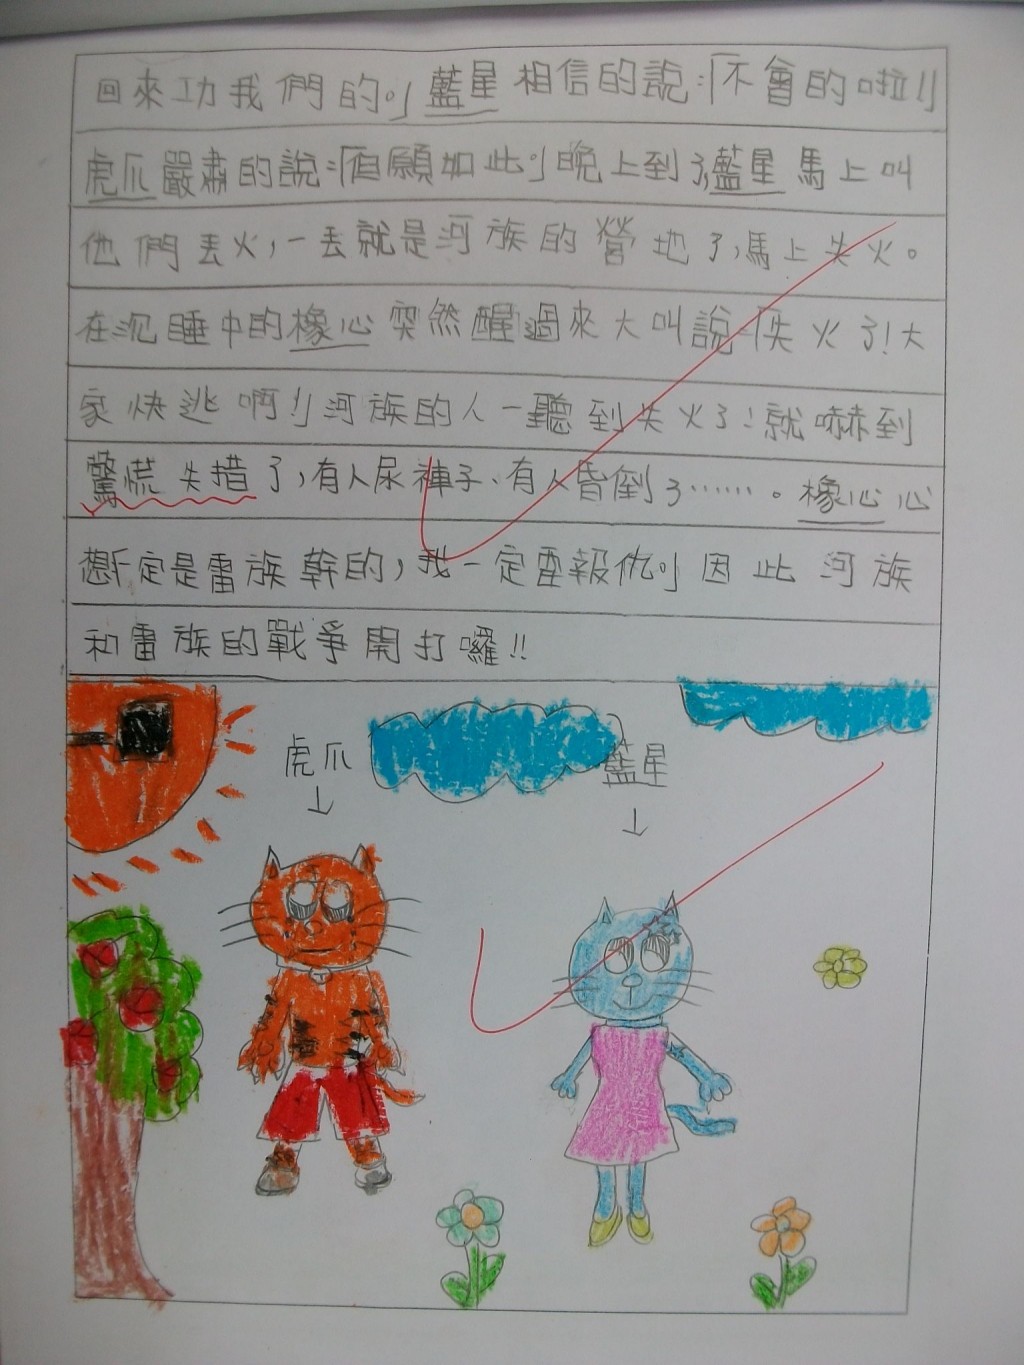 回來功我們的。」藍星相信的說:「不會的啦!」
虎爪嚴肅的說:「但願如此。」晚上到了,藍星馬上叫
他們丟火,一丟就是河族的營地了,馬上失火。
在沉睡中的橡心突然醒過來大叫說:「失火了!大
家快逃啊!」河族的人一聽到失火了!就嚇到
驚慌失措了,有人尿褲子、有人昏倒了……。橡心心
想「一定是雷族幹的,我一定要報仇。」因此河族
和雷族的戰爭開打囉!!
虎爪
藍星